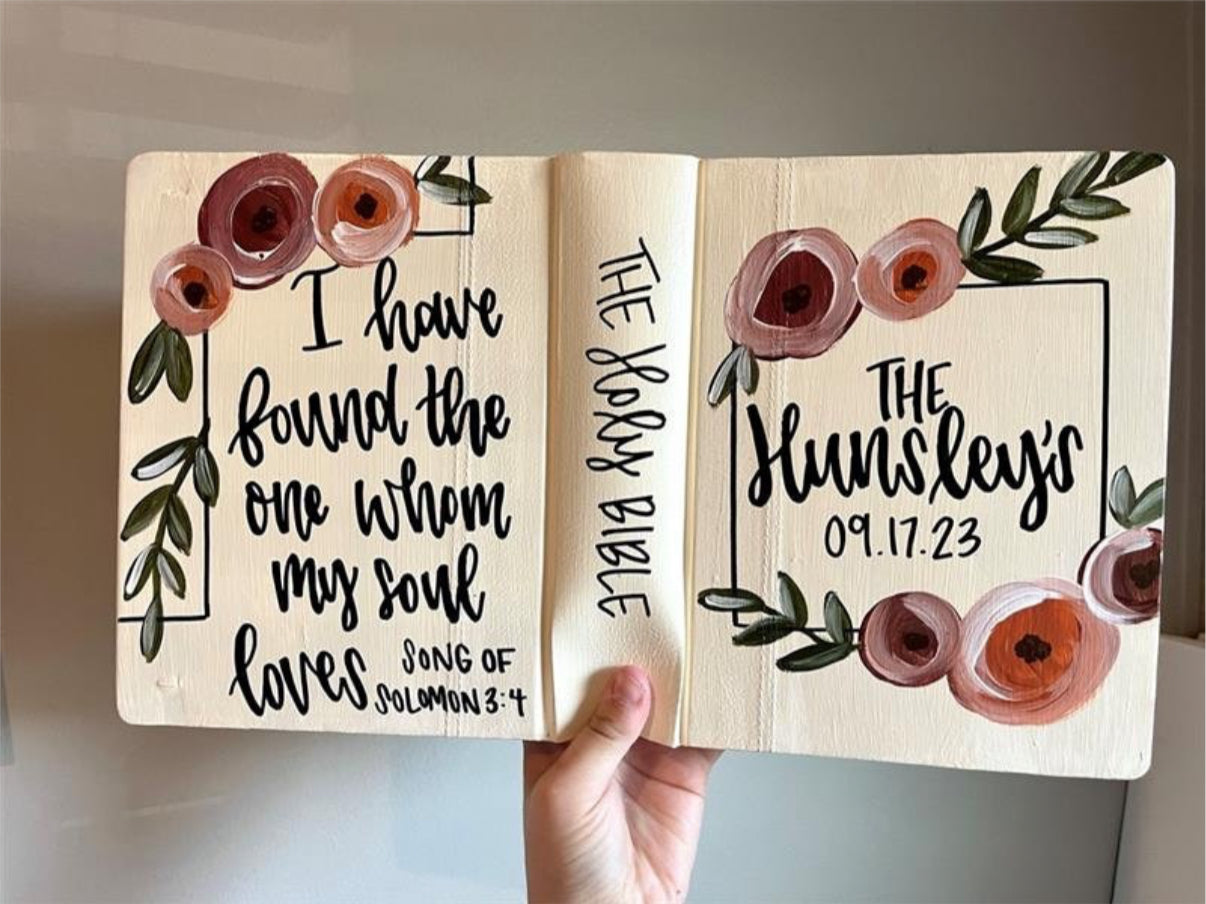 I have
found the
one whom
my soul
loves SONG OF
SOLOMON 3:4
THE Holy BIBLE
THE
Hunsley's
09.17.23